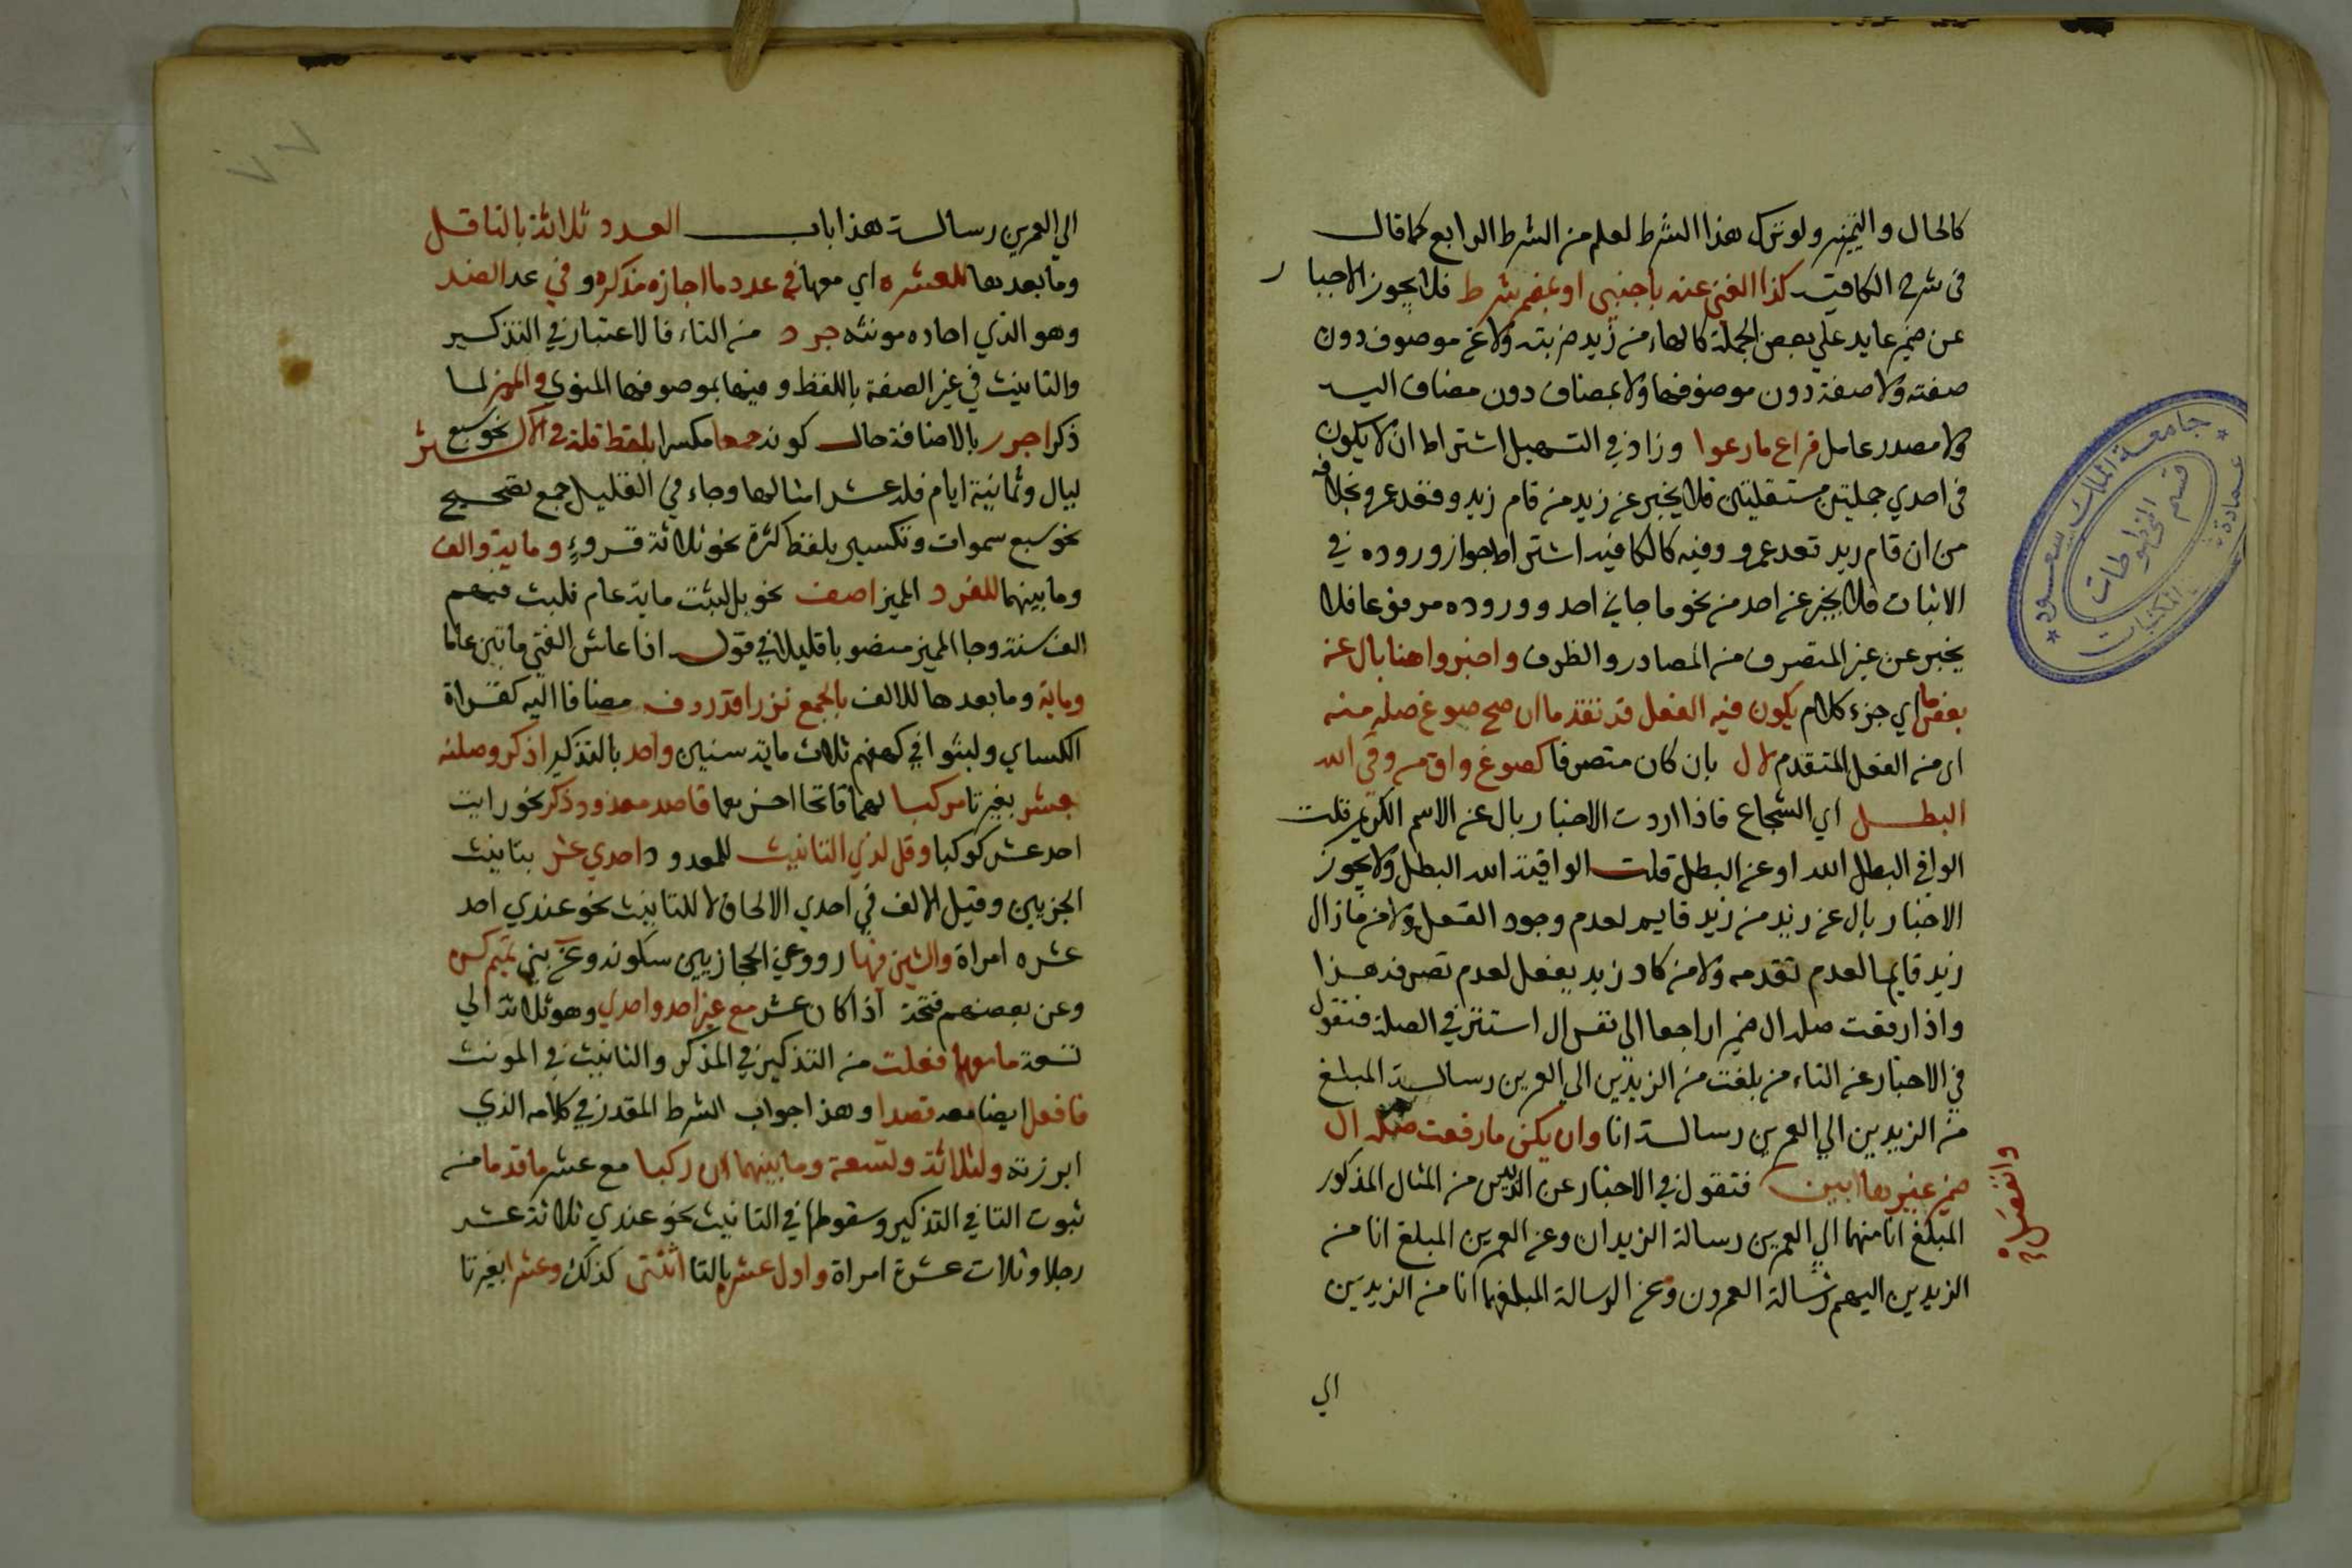 كالحال والتمييز ولو ترك هذا الشرط لعلم من الشرط الرابع كما قال
في شرح الكافية كذا الغنى عنه باجنبي او بمضمر شرط فلا يجوز الاخبار
عن ضمير عايد على بعض الجملة كالهاء من زيد ضربته ولا عن موصوف دون
صفته ولا صفة دون موصوفها ولا بمضاف دون مضاف اليه
ولا مصدر عامل فراع ما رعوا وزاد في التسهيل اشتراط ان لا يكون
في احدي جملتين مستقلتين فلا يخبر عن زيد من قام زيد وقعد عمرو بخلافه
من ان قام زيد قعد عمرو وفيه كالكافيه اشتراط جواز وروده في
الاثبات فلا يخبر عن احد من نحو ما جاني احد ووروده مرفوعا فلا
يخبر عن غير المتصرف من المصادر والظرف واخبروا هنا بال عن
بعض ما اي جزء كلام يكون فيه الفعل قد تقدما ان صح صوغ صلة منه
اي من الفعل المتقدم لال بان كان متصرفا كصوغ واق من وقى الله
البطل اي الشجاع فاذا اردت الاخبار بال عن الاسم الكريم قلت
الواقي البطل الله او عن البطل قلت الواقيه الله البطل ولا يجوز
الاخبار بال عن زيد من زيد قايم لعدم وجود الفعل ولا من ما زال
زيد قايما لعدم تقدمه ولا من كاد زيد يفعل لعدم تصرفه هذا
واذا رفعت صلة ال ضميرا راجعا الى نفس ال استتر في الصلة فتقول
في الاخبار عن التاء من بلغت من الزيدين الي العمرين رسالة المبلغ
من الزيدين الي العمرين رسالة انا وان يكن ما رفعت صلة ال
ضمير غيرها ابين وانفصل فتقول في الاخبار عن الزيدين من المثال المذكور
المبلغ انا منهما الي العمرين رسالة الزيدان وعن العمرين المبلغ انا من
الزيدين اليهم رسالة العمرون وعن الرسالة المبلغها انا من الزيدين
الي
جامعة الملك سعود
عمادة المكتبات
قسم المخطوطات
٧٧
الي العمرين رسالة هذا باب العدد ثلاثة بالتا قل
وما بعدها للعشره اي معها في عدد ما احاده مذكره وفي عد الضد
وهو الذي احاده مونثه جرد من التاء فالاعتبار في التذكير
والتانيث في غير الصفة باللفظ وفيها بموصوفها المنوي والمميز لما
ذكر اجرر بالاضافة حال كونه جمعا مكسرا بلفظ قلة في الاكثر نحو سبع
ليال وثمانية ايام فله عشر امثالها وجاء في القليل جمع تصحيح
نحو سبع سموات وتكسير بلفظ كثرة نحو ثلاثة قروء وماية والف
وما بينهما للفرد المميز اضف نحو بل لبثت ماية عام فلبث فيهم
الف سنة وجا المميز منصوبا قليلا في قوله اذا عاش الفتى ماتين عاما
وماية وما بعدها للالف بالجمع نزرا قد ردف مضافا اليه كقراة
الكساي ولبثوا في كهفهم ثلاث ماية سنين واحد بالتذكير اذكر وصلنه
بعشر بغير تا مركبا لهما فاتحا اخرهما قاصد معدود ذكر نحو رايت
احد عشر كوكبا وقل لدي التانيث للمعدود احدي عشر بتانيث
الجزيين وقيل الالف في احدي الالحاق لا للتانيث نحو عندي احد
عشره امراة والشين فيها رووعن الحجازيين سكونه وعن بني تميم كسره
وعن بعضهم فتحه اذا كان عشر مع غير احد واحدي وهو ثلاثة الي
تسعة ما معهما فعلت من التذكير في المذكر والتانيث في المونث
فافعل ايضا معه قصدا وهذا جواب الشرط المقدر في كلامه الذي
ابرزته ولثلاثة وتسعة وما بينهما ان ركبا مع عشر ما قدما من
ثبوت التا في التذكير وسقوطها في التانيث نحو عندي ثلاثة عشر
رجلا وثلاث عشرة امراة واول عشرة بالتا اثنتى كذلك وعشرا بغير تا